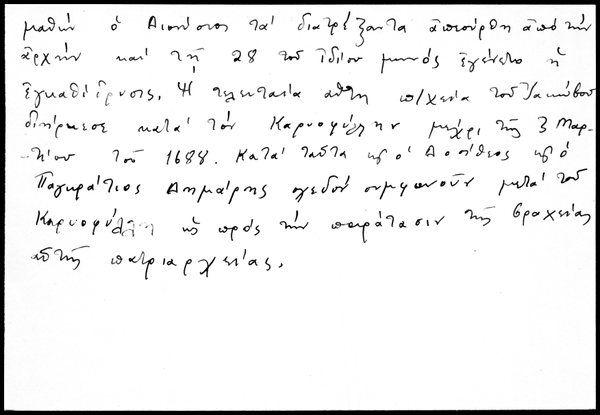 μαθὼν ὁ Διονύσιος τὰ διατρέξαντα ἀπεσύρθη ἀπὸ τὴν
ἀρχὴν καὶ τῇ 28 τοῦ ἰδίου μηνὸς ἐγένετο ἡ
ἐγκαθίδρυσις. Ἡ τελευταία αὕτη π/χεία τοῦ Ἰακώβου
διήρκεσε κατὰ τὸν Καρυοφύλλην μέχρι τῆς 3 Μαρ-
τίου τοῦ 1688. Κατὰ ταῦτα κὶ ὁ Δοσίθεος κὶ ὁ
Παγκράτιος Δημάρης σχεδὸν συμφωνοῦν μετὰ τοῦ
Καρυοφύλλη ὡς πρὸς τὴν παράτασιν τῆς βραχείας
αὐτῆς πατριαρχείας.